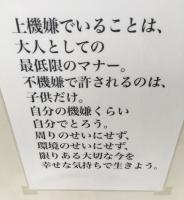 上機嫌でいることは、
大人としての
最低限のマナー。
不機嫌で許されるのは、
子供だけ。
自分の機嫌くらい
自分でとろう。
周りのせいにせず、
環境のせいにせず、
限りある大切な今を
幸せな気持ちで生きよう。